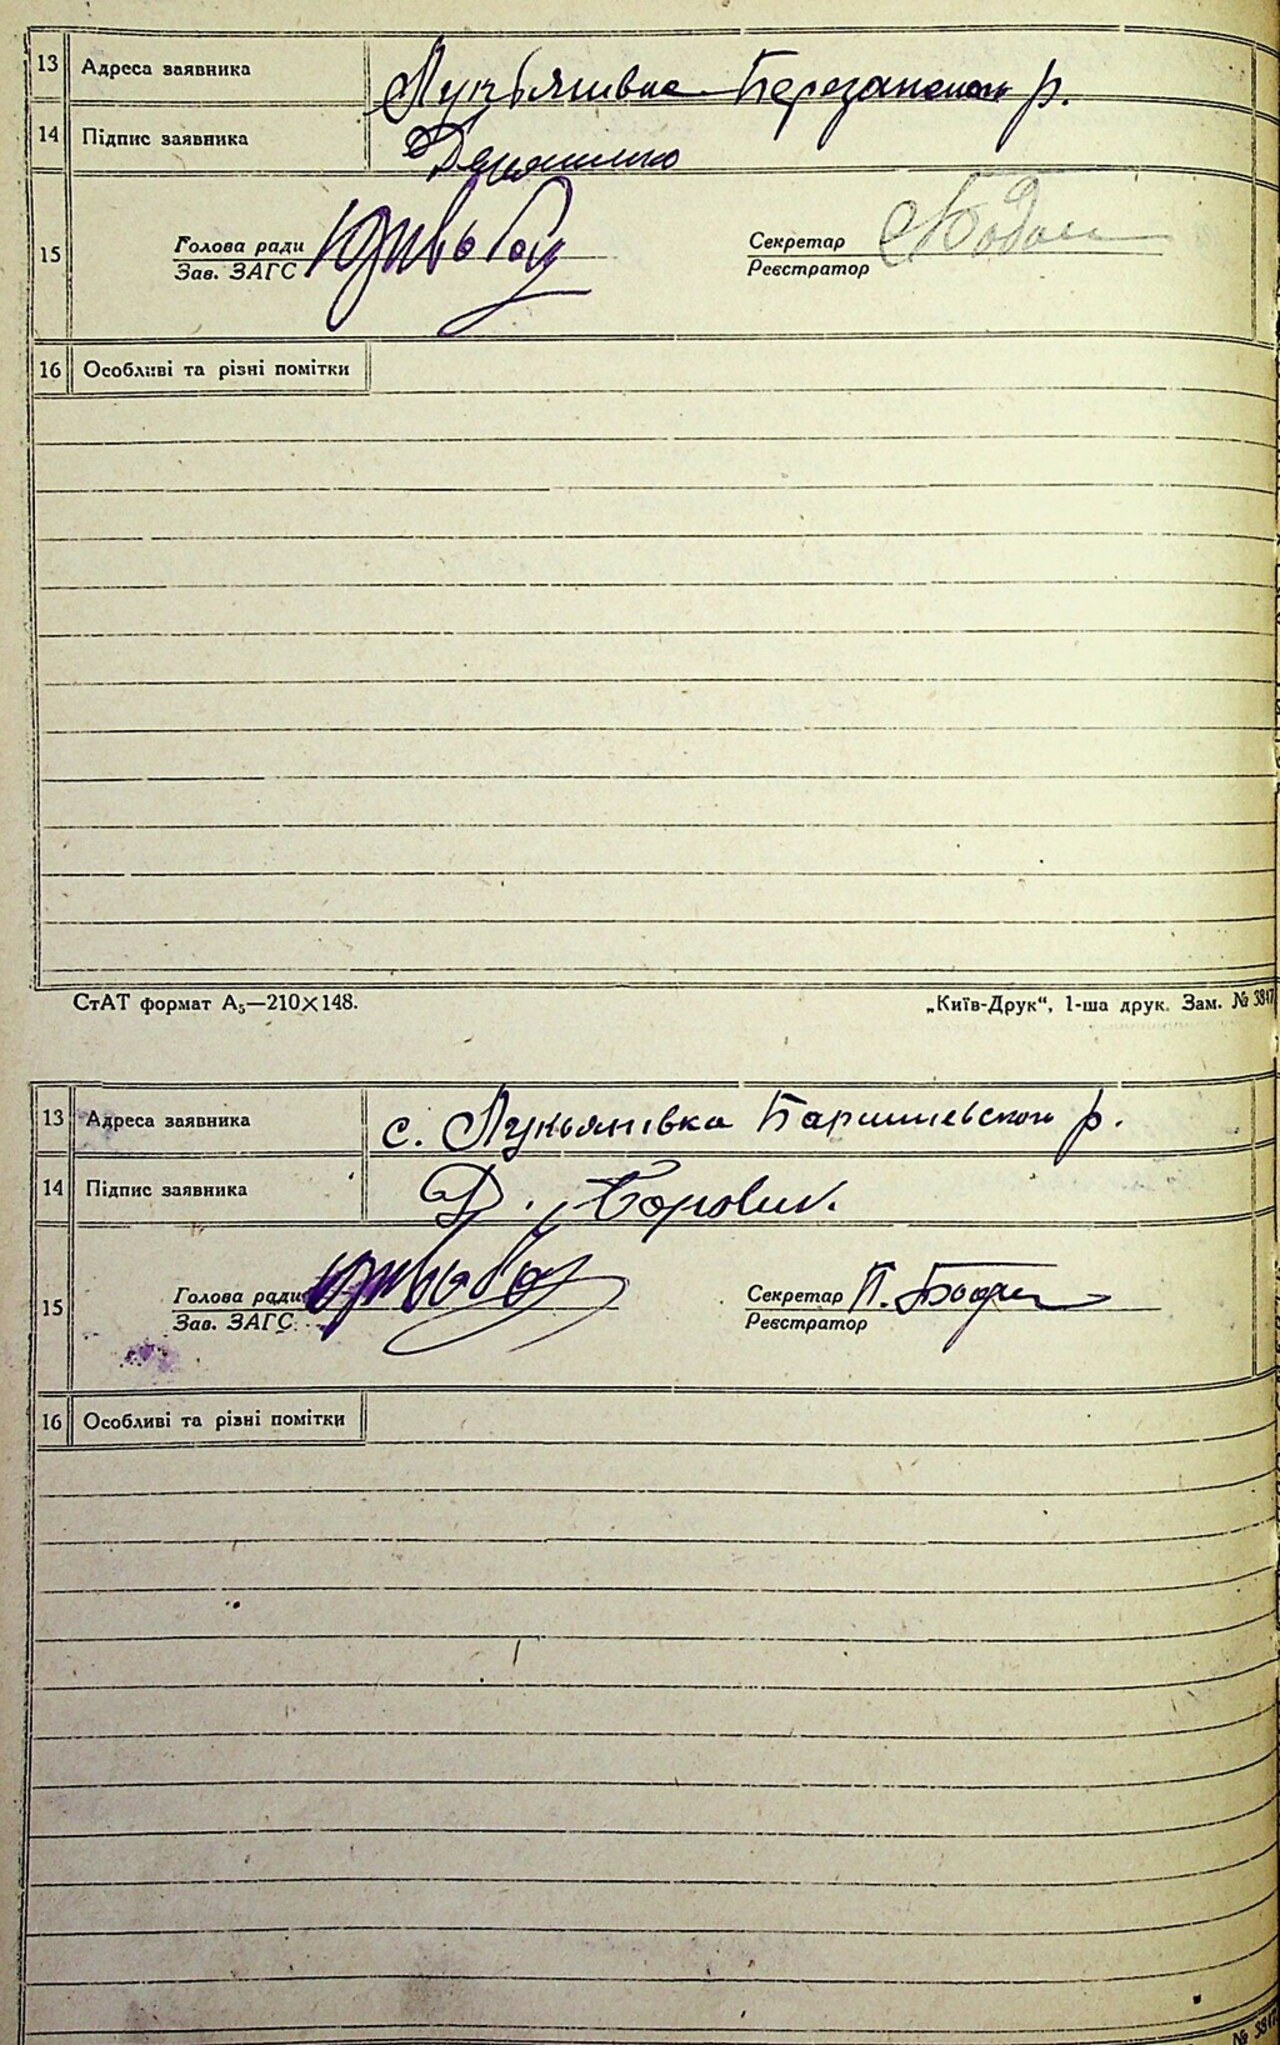 13 Адреса заявника Лукъянивка Березанського р.
14 Підпис заявника
Голова ради Секретар
15
Зав. ЗАГС Реєстратор
16 Особливі та різні помітки
СтАТ формат А₅—210×148. „Київ-Друк“, 1-ша друк. Зам. № 3817
13 Адреса заявника с. Лукьянівка Баришевського р.
14 Підпис заявника Д. Боровик.
Голова ради Секретар П.
15
Зав. ЗАГС Реєстратор
16 Особливі та різні помітки